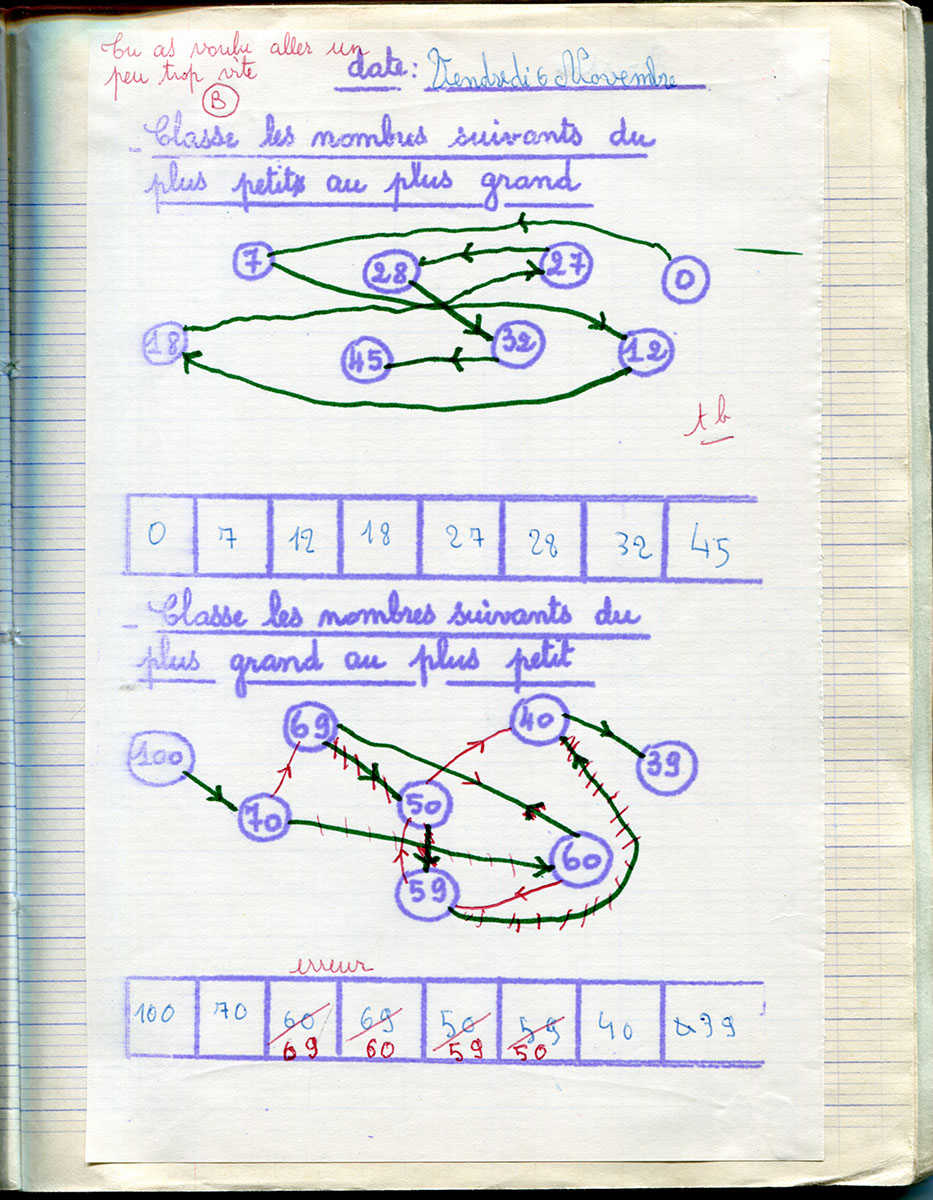 Tu as voulu aller un
peu trop vite
B
date: Vendredi 6 Novembre
- Classe les nombres suivants du
plus petit au plus grand
7 28 27 0
18 45 32 12
tb
0 7 12 18 27 28 32 45
- Classe les nombres suivants du
plus grand au plus petit
100 69 40 39
70 50 60
59
erreur
100 70 60 69 50 59 40 39
69 60 59 50